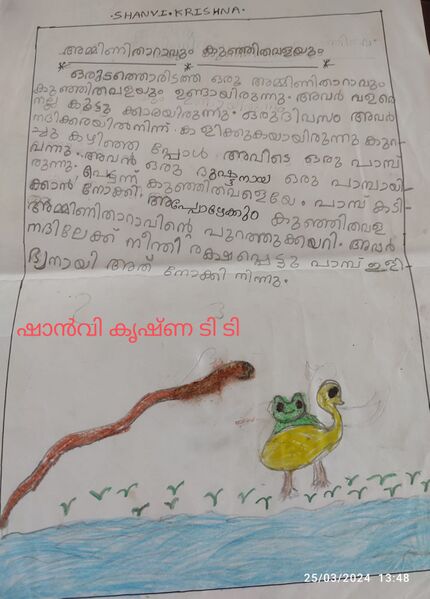 SHANVI.KRISHNA.
അമ്മിണിതാറാവും കുഞ്ഞിതവളയും
ഒരുടത്തൊരിടത്ത് ഒരു അമ്മിണിതാറാവും
കുഞ്ഞിതവളയും ഉണ്ടായിരുന്നു. അവർ വളരെ
നല്ല കൂട്ടു ക്കാരയിരുന്നു. ഒരുദിവസം അവർ
നദിക്കരയിൽനിന്ന് കളിക്കുകയായിരുന്നു കുറ-
ച്ചു കഴിഞ്ഞ പ്പോൾ അവിടെ ഒരു പാമ്പ്
വന്നു. അവൻ ഒരു ദുഷ്ടനായ ഒരു പാമ്പായി-
രുന്നു. പെട്ടന്ന് കുഞ്ഞിതവളയേ. പാമ്പ് കടി-
ക്കാൻ നോക്കി. അപ്പോളേക്കും കുഞ്ഞിതവള
അമ്മിണിതാറാവിന്റെ പുറത്തുക്കയറി. അവർ
നദിലേക്ക് നീന്തി രക്ഷപ്പെട്ടു പാമ്പ് ഇളി-
ഭ്യനായി അത് നോക്കി നിന്നു.
ഷാൻവി കൃഷ്ണ ടി ടി
25/03/2024 13:48